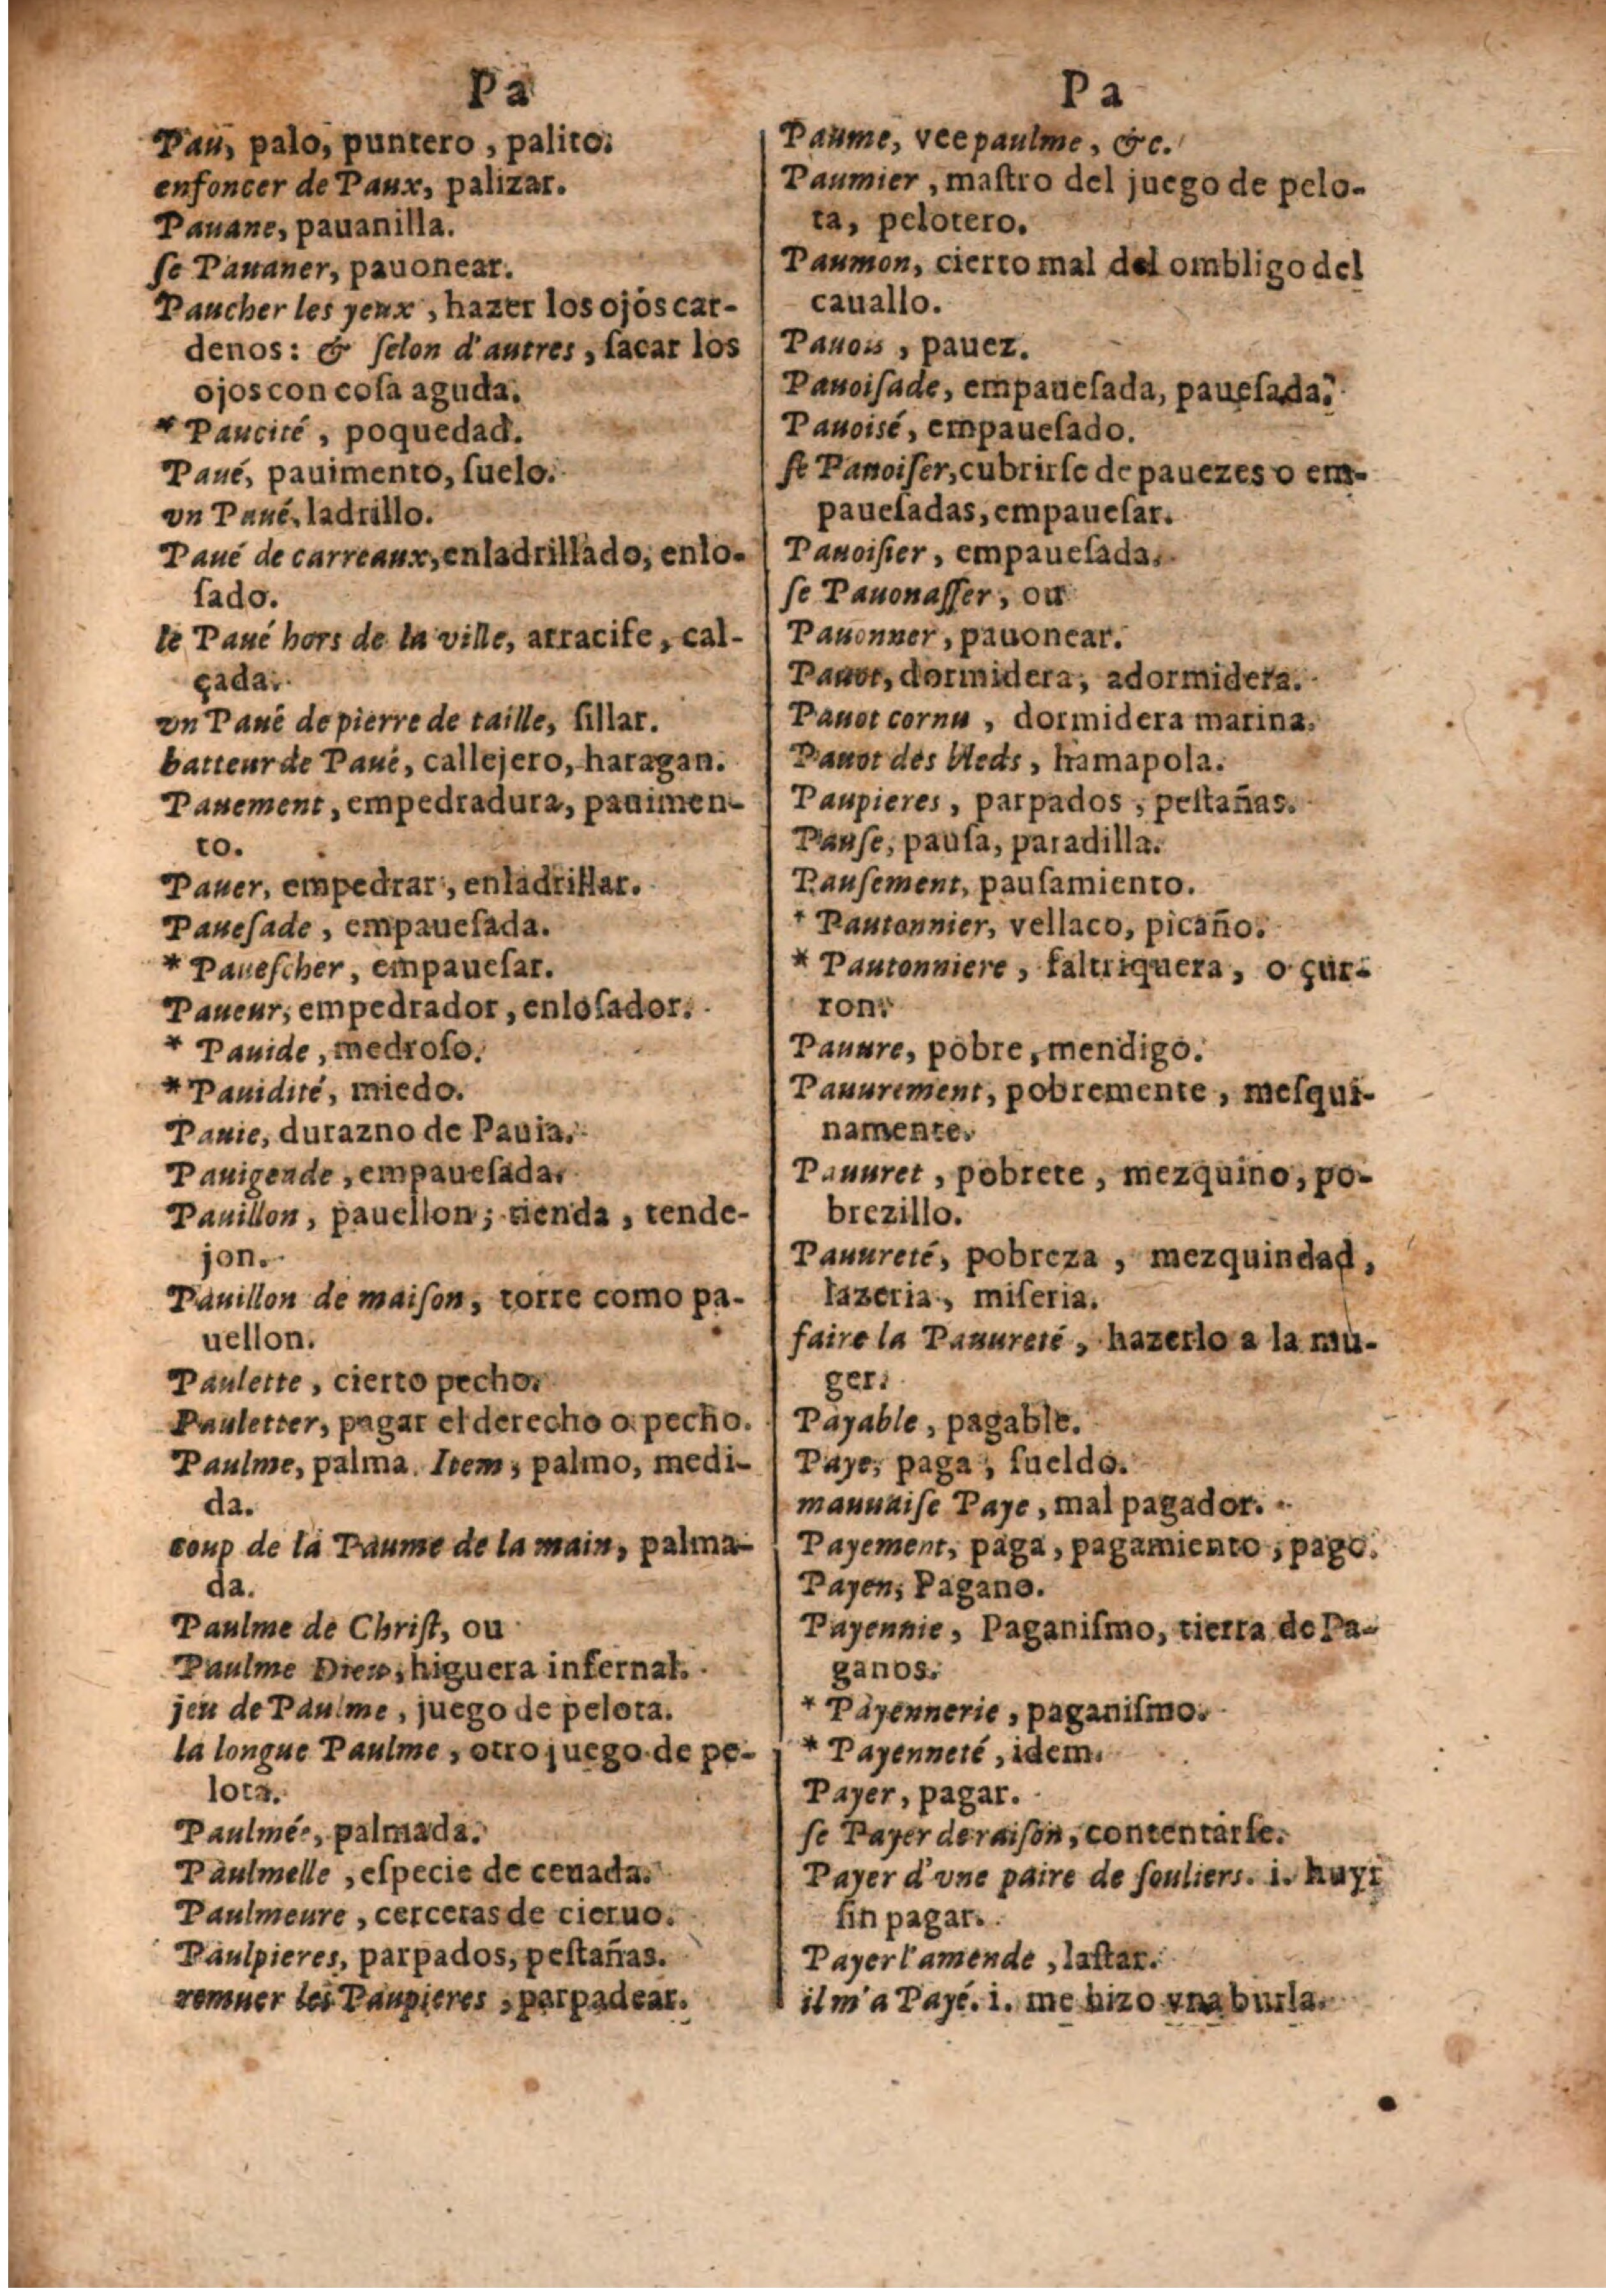 Pa
Pau, palo, puntero, palito.
enfoncer de Paux, palizar.
Pauane, pauanilla.
ſe Pauaner, pauonear.
Paucher les yeux, hazer los ojos car-
denos: & ſelon d'autres, ſacar los
ojos con coſa aguda.
* Paucité, poquedad.
Paué, pauimento, ſuelo.
vn Paué, ladrillo.
Paué de carreaux, enladrillado, enlo-
ſado.
le Paué hors de la ville, arracife, cal-
çada.
vn Paué de pierre de taille, ſillar.
batteur de Paué, callejero, haragan.
Pauement, empedradura, pauimen-
to.
Pauer, empedrar, enladrillar.
Paueſade, empaueſada.
* Paueſcher, empaueſar.
Paueur, empedrador, enloſador.
* Pauide, medroſo.
* Pauidité, miedo.
Pauie, durazno de Pauia.
Pauigende, empaueſada.
Pauillon, pauellon; tienda, tende-
jon.
Pauillon de maiſon, torre como pa-
uellon.
Paulette, cierto pecho.
Pauletter, pagar el derecho o pecho.
Paulme, palma. Item, palmo, medi-
da.
coup de la Paume de la main, palma-
da.
Paulme de Chriſt, ou
Paulme Dieu, higuera infernal.
jeu de Paulme, juego de pelota.
la longue Paulme, otro juego de pe-
lota.
Paulmée, palmada.
Paulmelle, eſpecie de ceuada.
Paulmeure, cerceras de cieruo.
Paulpieres, parpados, peſtañas.
remuer les Paupieres, parpadear.
Pa
Paume, vee paulme, &c.
Paumier, maſtro del juego de pelo-
ta, pelotero.
Paumon, cierto mal del ombligo del
cauallo.
Pauois, pauez.
Pauoiſade, empaueſada, paueſada.
Pauoisé, empaueſado.
ſe Pauoiſer, cubrirſe de pauezes o em-
paueſadas, empaueſar.
Pauoiſier, empaueſada.
ſe Pauonaſſer, ou
Pauonner, pauonear.
Pauot, dormidera, adormidera.
Pauot cornu, dormidera marina.
Pauot des bleds, hamapola.
Paupieres, parpados, peſtañas.
Pauſe, pauſa, paradilla.
Pauſement, pauſamiento.
* Pautonnier, vellaco, picaño.
* Pautonniere, faltriquera, o çur-
ron.
Pauure, pobre, mendigo.
Pauurement, pobremente, meſqui-
namente.
Pauuret, pobrete, mezquino, po-
brezillo.
Pauureté, pobreza, mezquindad,
lazeria, miſeria.
faire la Pauureté, hazerlo a la mu-
ger.
Payable, pagable.
Paye, paga, ſueldo.
mauuaiſe Paye, mal pagador.
Payement, paga, pagamiento, pago.
Payen, Pagano.
Payennie, Paganiſmo, tierra de Pa-
ganos.
* Payennerie, paganiſmo.
* Payenneté, idem.
Payer, pagar.
ſe Payer de raiſon, contentarſe.
Payer d'vne paire de ſouliers. i. huyr
ſin pagar.
Payer l'amende, laſtar.
il m'a Payé. i. me hizo vna burla.